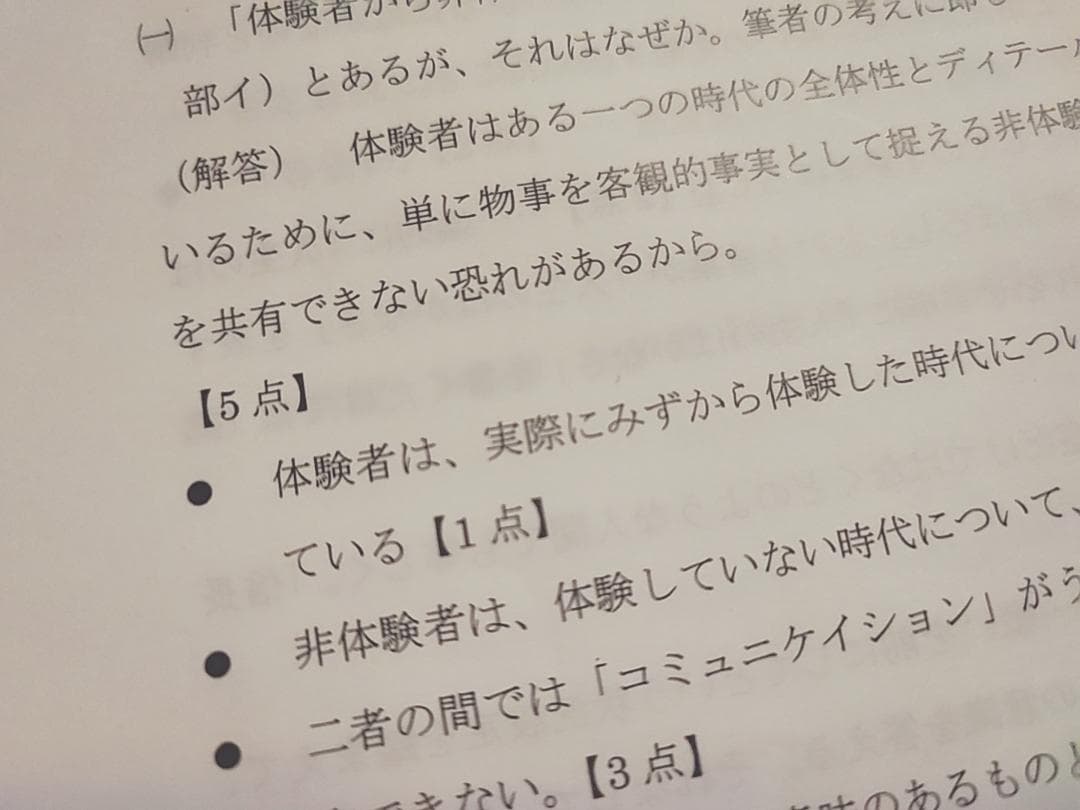 ㈠ 「体験者から非体
部イ）とあるが、それはなぜか。筆者の考えに即し
（解答） 体験者はある一つの時代の全体性とディテール
いるために、単に物事を客観的事実として捉える非体験
を共有できない恐れがあるから。
【5点】
● 体験者は、実際にみずから体験した時代につい
ている【1点】
● 非体験者は、体験していない時代について、
● 二者の間では「コミュニケイション」がう
できない。【3点】
のあるものと